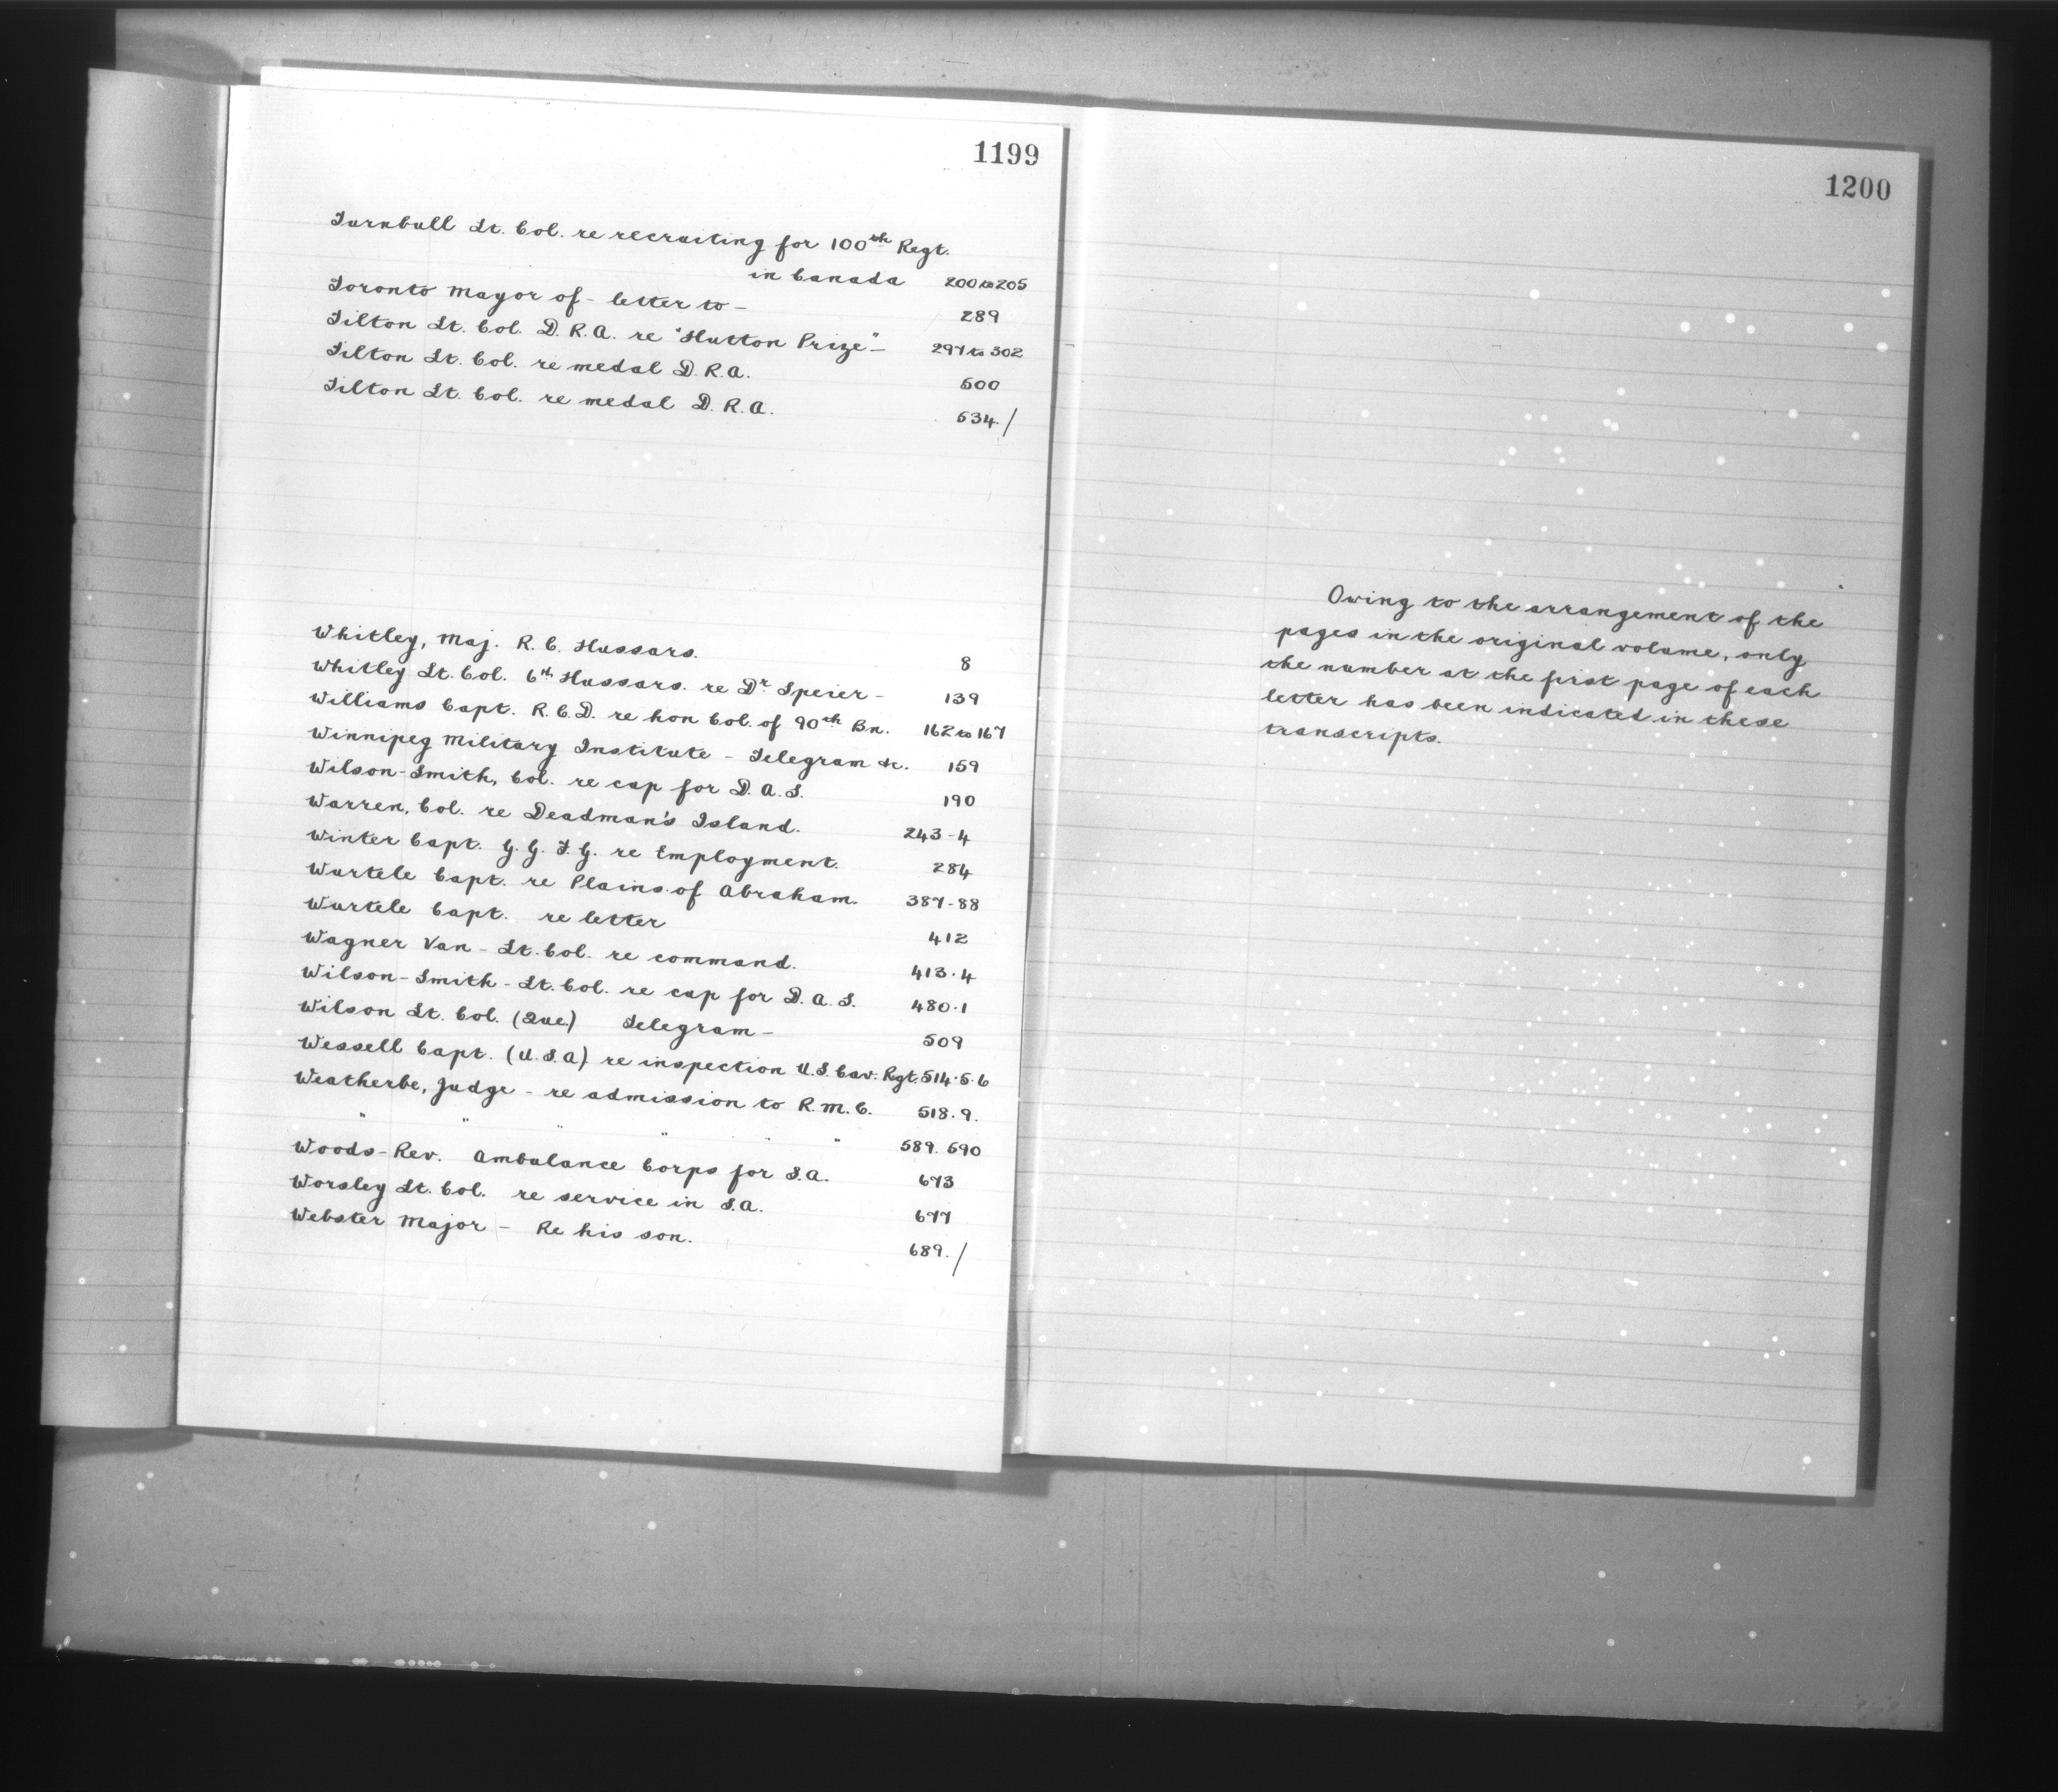 1199
Turnbull Lt. Col. re recruiting for 100th Regt.
in Canada 200 to 205
Toronto Mayor of - letter to - 289
Tilton Lt. Col. D. R. A. re "Hutton Prize" - 297 to 302
Tilton Lt. Col. re medal D. R. A. 500
Tilton Lt. Col. re medal D. R. A. 534. /
Whitley, Maj. R. C. Hussars. 8
Whitley Lt. Col. 6th Hussars. re Dr. Speier - 139
Williams Capt. R. C. D. re hon Col. of 90th Bn. 162 to 167
Winnipeg Military Institute - Telegram &c. 159
Wilson-Smith, Col. re cap for D. A. S. 190
Warren, Col. re Deadman's Island. 243-4
Winter Capt. G. G. F. G. re Employment. 284
Wurtele Capt. re Plains of Abraham. 387-88
Wurtele Capt. re letter 412
Wagner Van - Lt. Col. re command. 413.4
Wilson-Smith - Lt. Col. re cap for D. A. S. 480.1
Wilson Lt. Col. (Que.) Telegram - 509
Wessell Capt. (U. S. A) re inspection U. S. Cav. Regt. 514.5.6
Weatherbe, Judge - re admission to R. M. C. 518.9.
" " " " " " 589. 590
Woods - Rev. Ambulance Corps for S. A. 673
Worsley Lt. Col. re service in S. A. 677
Webster Major - Re his son. 689. /
1200
Owing to the arrangement of the
pages in the original volume, only
the number at the first page of each
letter has been indicated in these
transcripts.